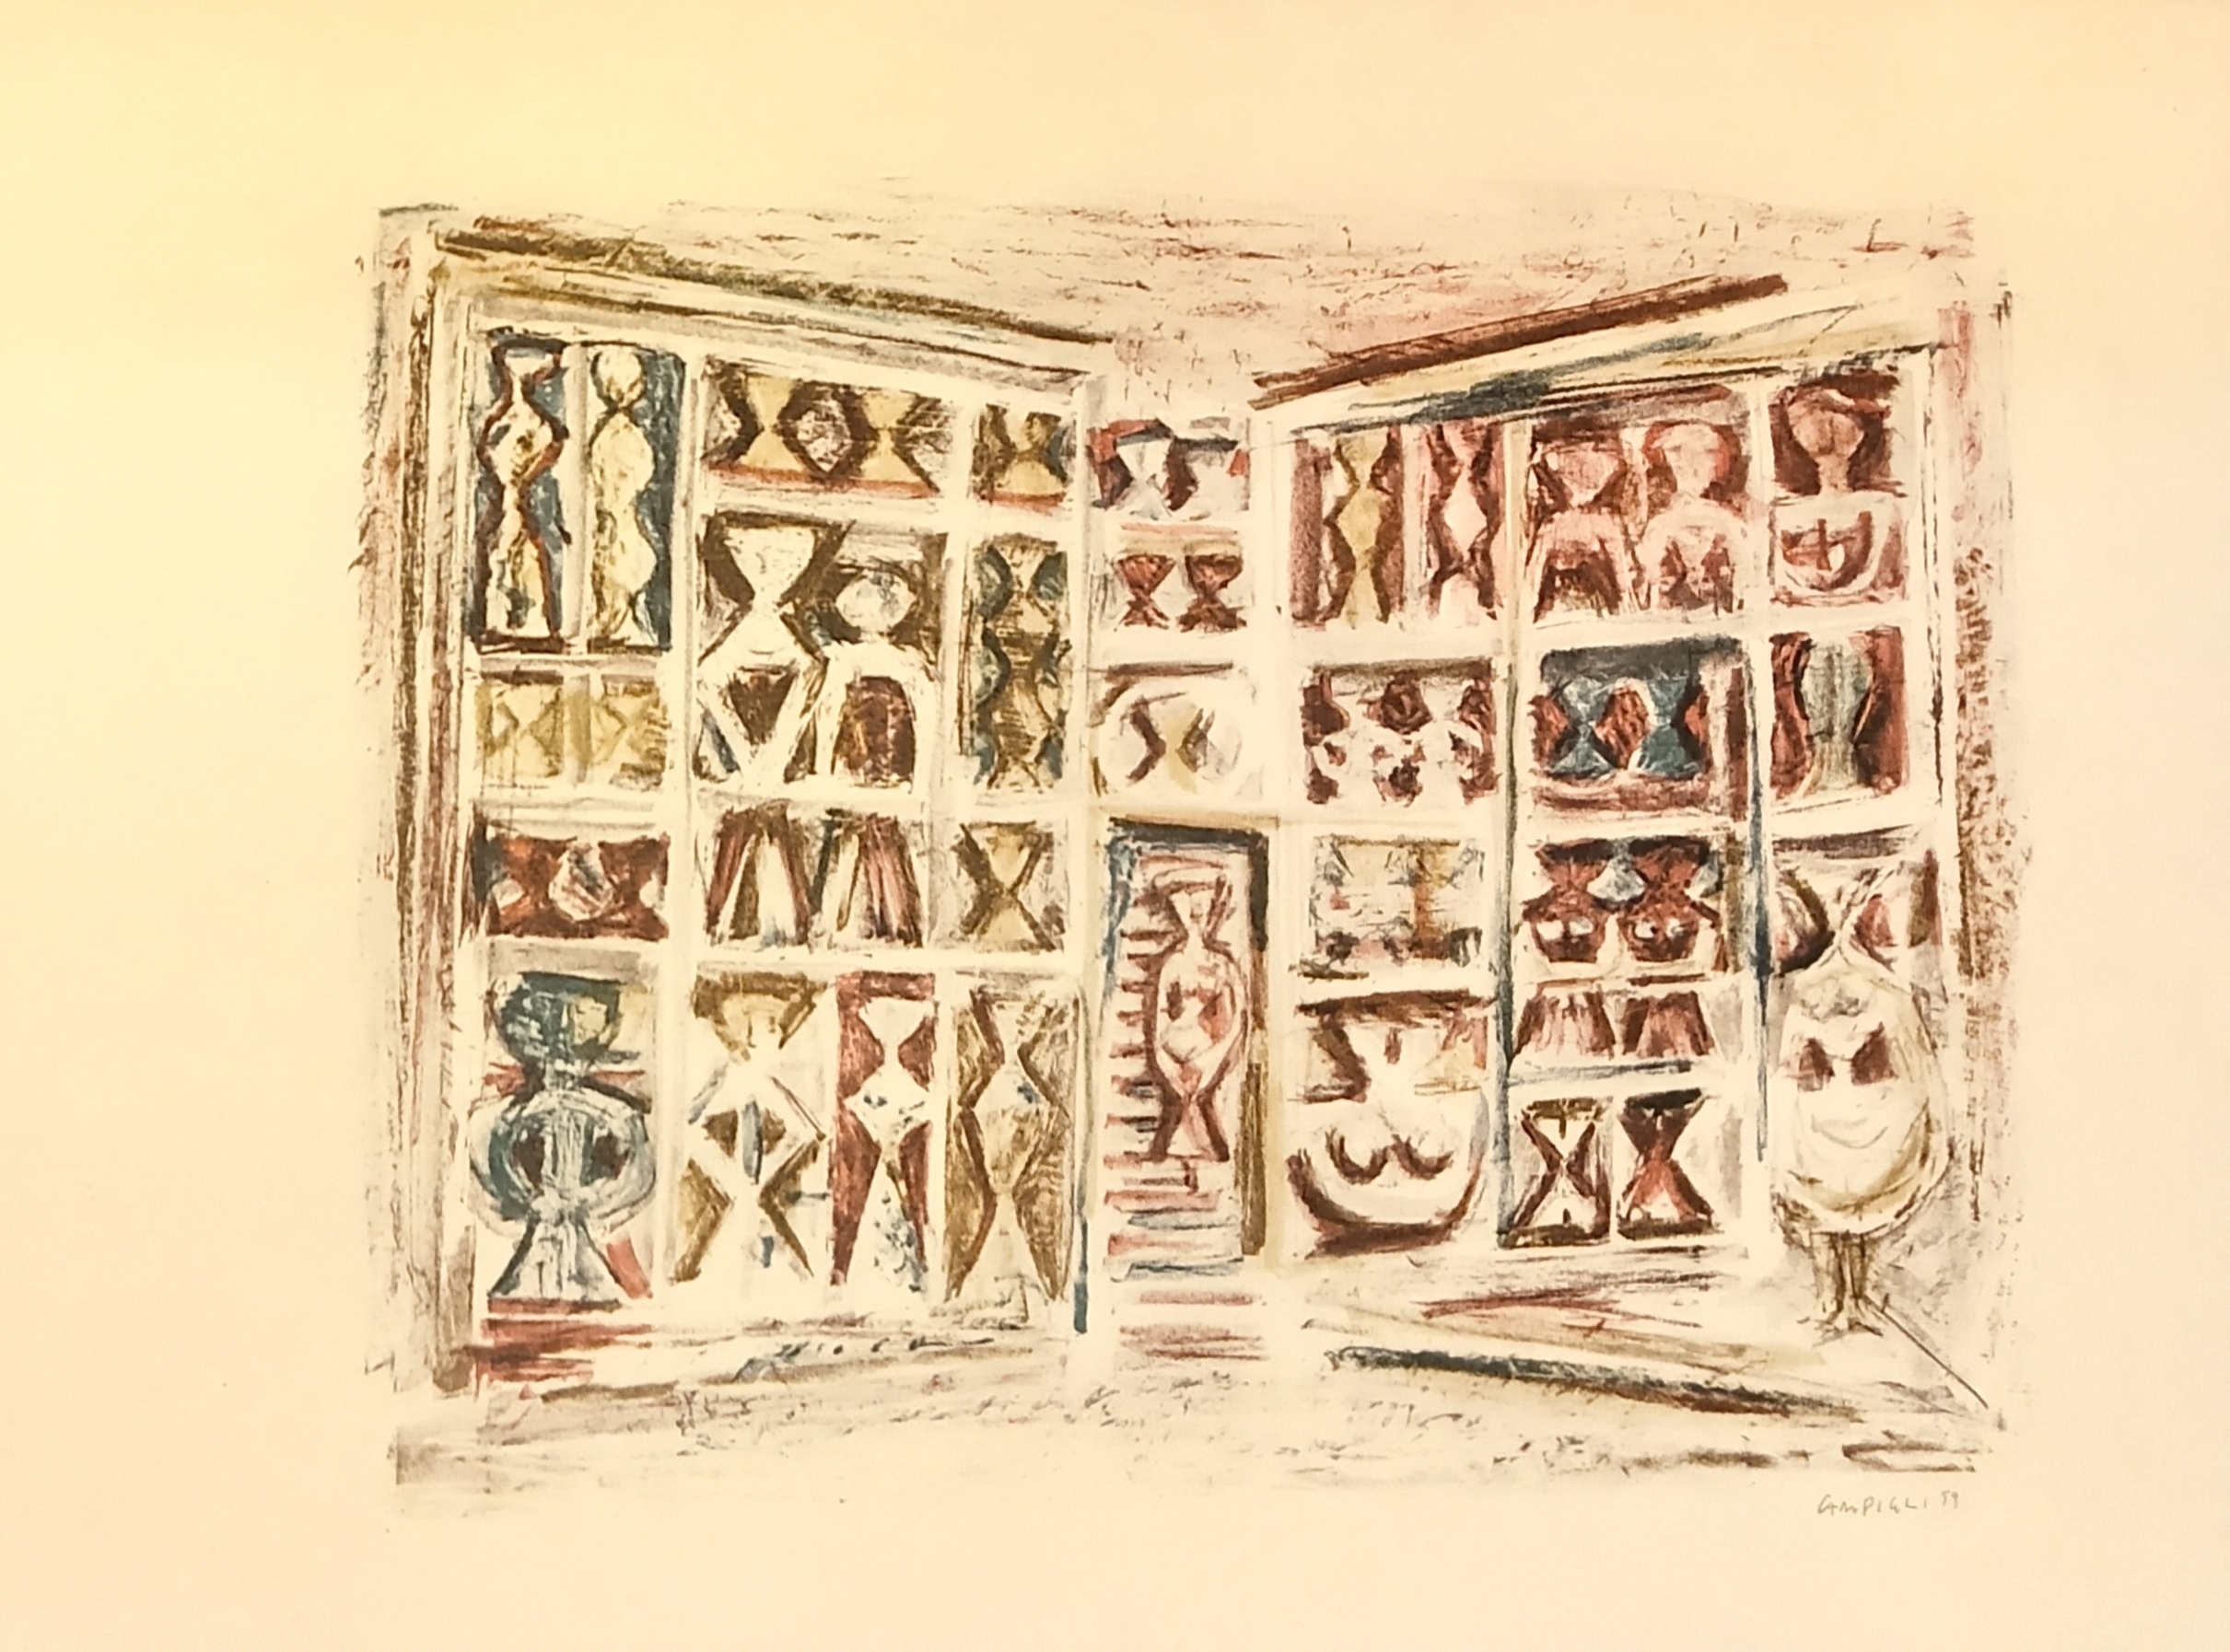 CAMPIGLI 59